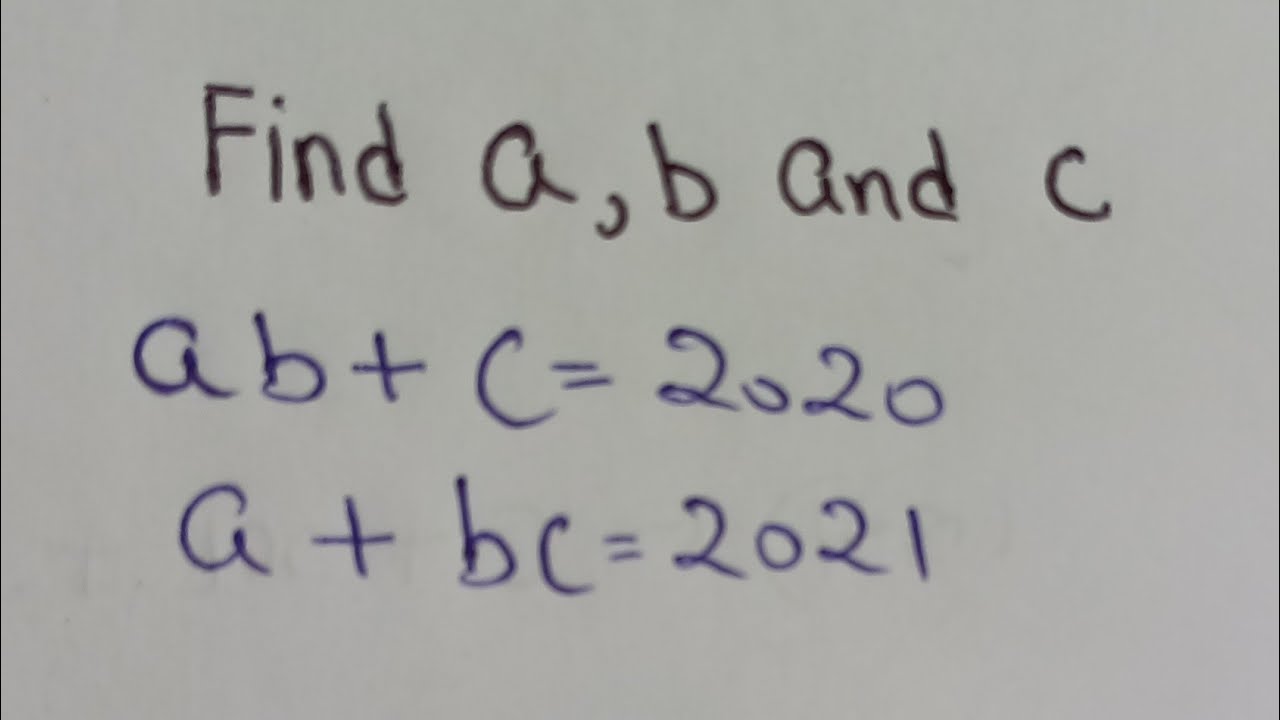 Find a, b and c
ab + c = 2020
a + bc = 2021